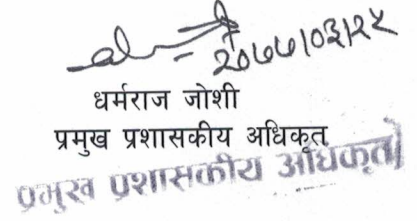 २०७७/०३/२५
धर्मराज जोशी
प्रमुख प्रशासकीय अधिकृत
प्रमुख प्रशासकीय अधिकृत